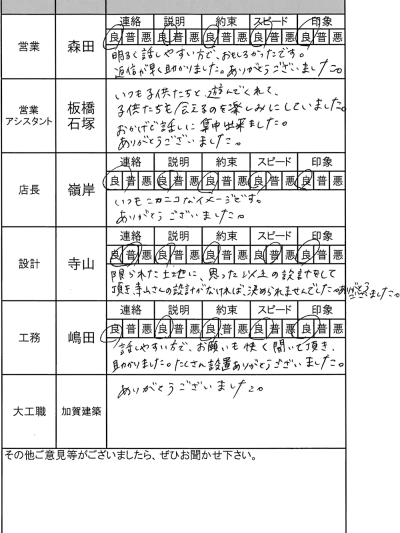 連絡 説明 約束 スピード 印象
営業 森田 良 普 悪 良 普 悪 良 普 悪 良 普 悪 良 普 悪
明るく話しやすい方で、おもしろかったです。
返信が早く助かりました。ありがとうございました。
営業アシスタント 板橋 石塚
いつも子供たちと遊んでくれて、
子供たちも会えるのを楽しみにしていました。
おかげで話しに集中出来ました。
ありがとうございました。
連絡 説明 約束 スピード 印象
店長 嶺岸 良 普 悪 良 普 悪 良 普 悪 良 普 悪 良 普 悪
いつもニカニコなイメージです。
ありがとうございました。
連絡 説明 約束 スピード 印象
設計 寺山 良 普 悪 良 普 悪 良 普 悪 良 普 悪 良 普 悪
限られた土地に、思った以上の設計をして
頂き寺山さんの設計がなければ、決められませんでした。ありがとうございました。
連絡 説明 約束 スピード 印象
工務 嶋田 良 普 悪 良 普 悪 良 普 悪 良 普 悪 良 普 悪
話しやすい方で、お願いも快く聞いて頂き、
助かりました。たくさん設置ありがとうございました。
大工職 加賀建築
ありがとうございました。
その他ご意見等がございましたら、ぜひお聞かせ下さい。